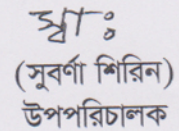 স্বাঃ
(সুবর্ণা শিরিন)
উপপরিচালক